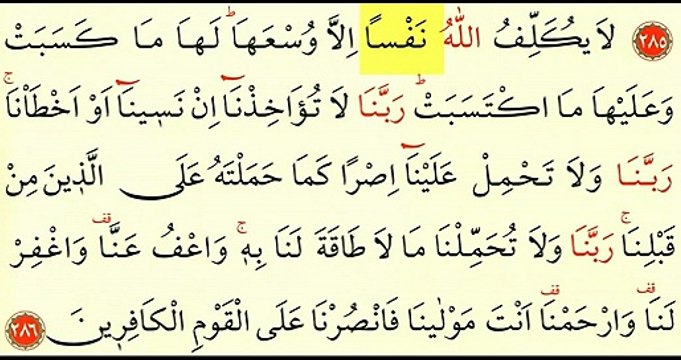 ﴿٢٨٥﴾ لَا يُكَلِّفُ اللّٰهُ نَفْسًا اِلَّا وُسْعَهَاۜ لَهَا مَا كَسَبَتْ
وَعَلَيْهَا مَا اكْتَسَبَتْۜ رَبَّنَا لَا تُؤَاخِذْنَٓا اِنْ نَسٖينَٓا اَوْ اَخْطَأْنَاۚ
رَبَّنَا وَلَا تَحْمِلْ عَلَيْنَٓا اِصْرًا كَمَا حَمَلْتَهُ عَلَى الَّذٖينَ مِنْ
قَبْلِنَاۚ رَبَّنَا وَلَا تُحَمِّلْنَا مَا لَا طَاقَةَ لَنَا بِهٖۚ وَاعْفُ عَنَّا قف وَاغْفِرْ
لَنَا قف وَارْحَمْنَا قف اَنْتَ مَوْلٰينَا فَانْصُرْنَا عَلَى الْقَوْمِ الْكَافِرٖينَ ﴿٢٨٦﴾